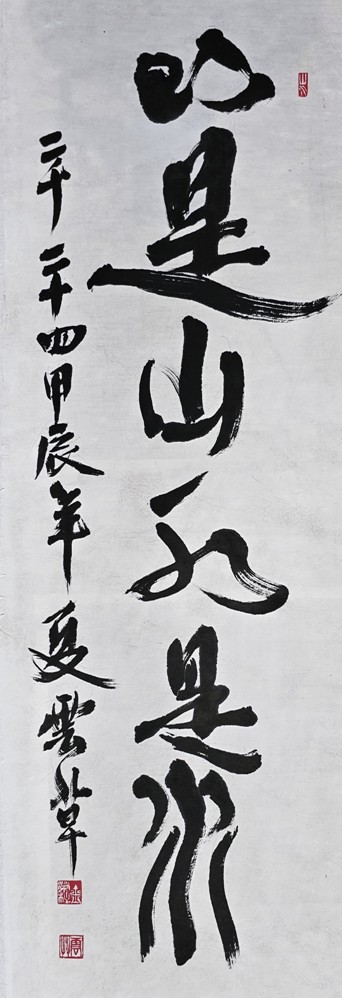 山是山水是水
二千二十四甲辰年夏雲